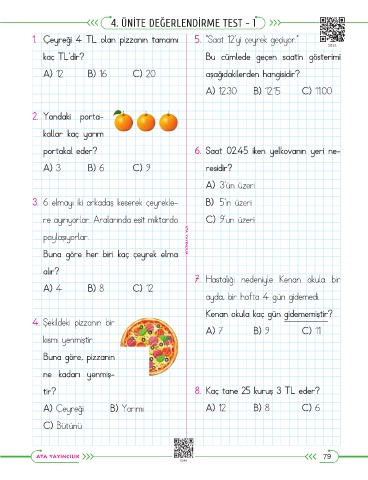 4. ÜNİTE DEĞERLENDİRME TEST - 1
1. Çeyreği 4 TL olan pizzanın tamamı
kaç TL'dir?
A) 12 B) 16 C) 20
2. Yandaki porta-
kallar kaç yarım
portakal eder?
A) 3 B) 6 C) 9
3. 6 elmayı iki arkadaş keserek çeyrekle-
re ayırıyorlar. Aralarında eşit miktarda
paylaşıyorlar.
Buna göre her biri kaç çeyrek elma
alır?
A) 4 B) 8 C) 12
4. Şekildeki pizzanın bir
kısmı yenmiştir.
Buna göre, pizzanın
ne kadarı yenmiş-
tir?
A) Çeyreği B) Yarımı
C) Bütünü
5. "Saat 12'yi çeyrek geçiyor."
Bu cümlede geçen saatin gösterimi
aşağıdakilerden hangisidir?
A) 12.30 B) 12.15 C) 11.00
6. Saat 02.45 iken yelkovanın yeri ne-
residir?
A) 3'ün üzeri
B) 5'in üzeri
C) 9'un üzeri
7. Hastalığı nedeniyle Kenan okula bir
ayda, bir hafta 4 gün gidemedi.
Kenan okula kaç gün gidememiştir?
A) 7 B) 9 C) 11
8. Kaç tane 25 kuruş 3 TL eder?
A) 12 B) 8 C) 6
ATA YAYINCILIK
79